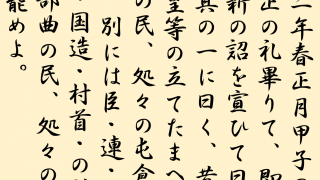 二年春正月甲子の
正の礼畢りて、即
新の詔を宣ひて曰
其の一に曰く、昔
皇等の立てたまへ
の民、処々の屯倉
別には臣・連・
・国造・村首・の所
部曲の民、処々の
罷めよ。